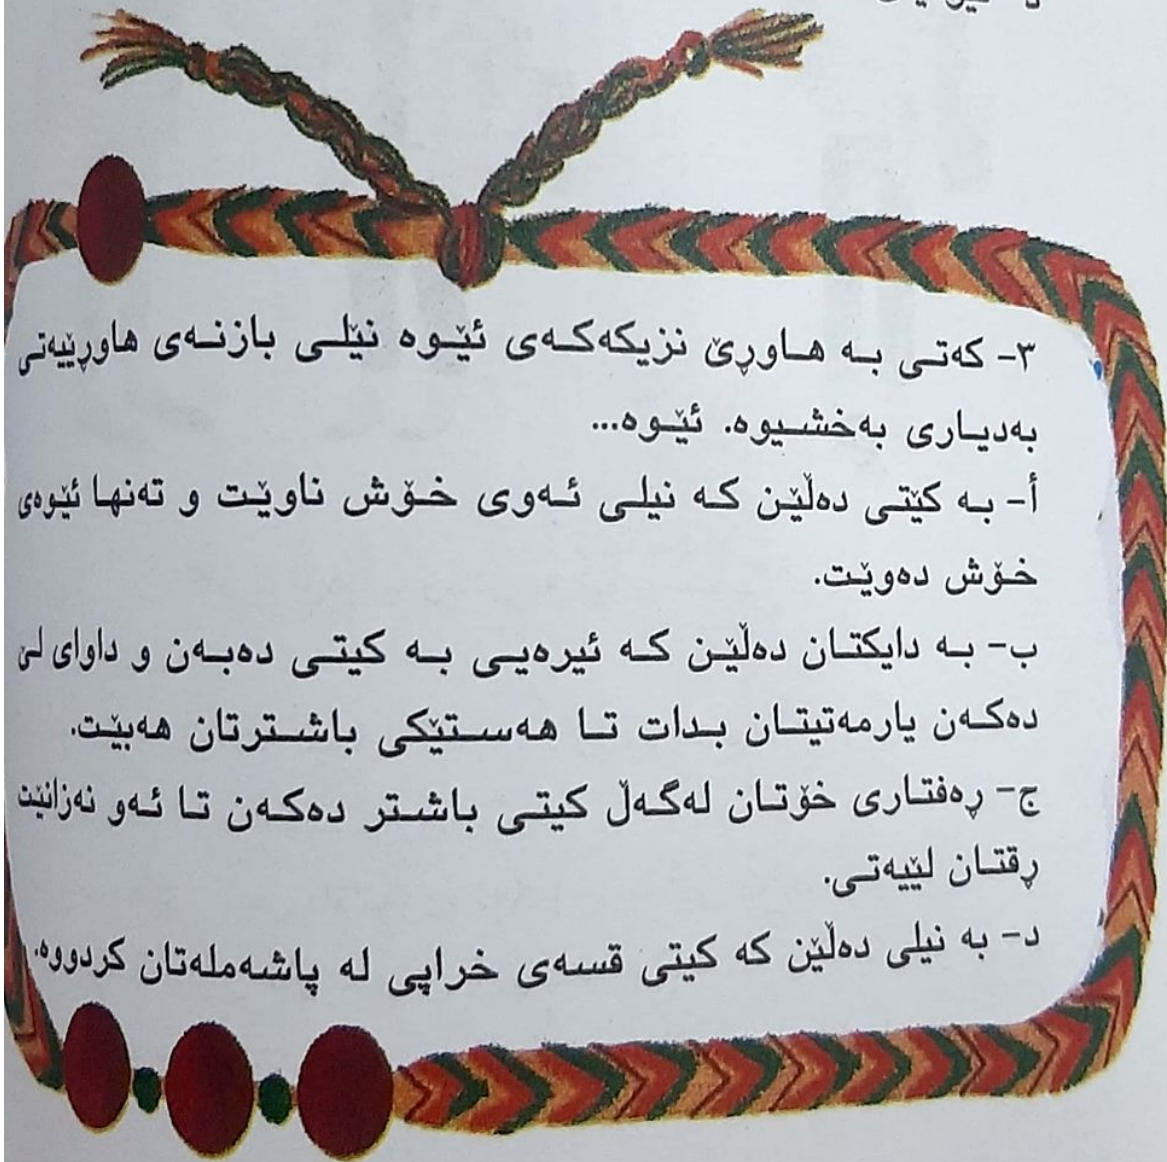 ٣- کەتی بە هاوڕێ نزیکەکەی ئێوە نێلی بازنەی هاوڕێیەتی
بەدیاری بەخشیوە. ئێوە...
أ- بە کێتی دەڵێن کە نیلی ئەوی خۆش ناوێت و تەنها ئێوەی
خۆش دەوێت.
ب- بە دایکتان دەڵێن کە ئیرەیی بە کیتی دەبەن و داوای لێ
دەکەن یارمەتیتان بدات تا هەستێکی باشترتان هەبێت.
ج- ڕەفتاری خۆتان لەگەڵ کیتی باشتر دەکەن تا ئەو نەزانێت
ڕقتان لێیەتی.
د- بە نیلی دەڵێن کە کیتی قسەی خراپی لە پاشەملەتان کردووە.